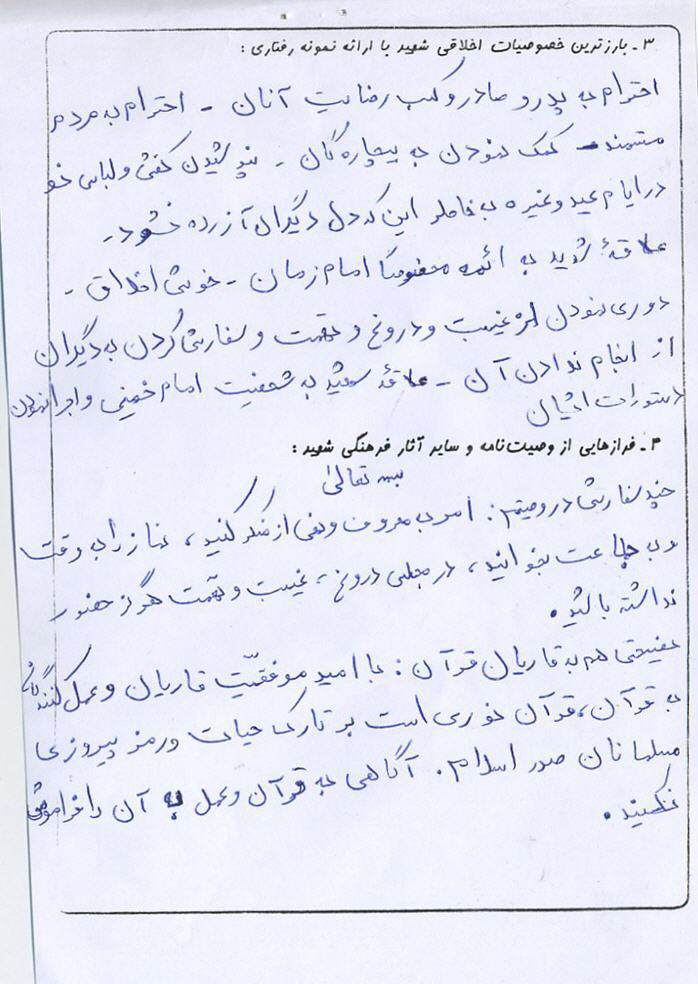 ۳ ـ بارزترین خصوصیات اخلاقی شهید با ارائه نمونه رفتاری :
احترام به پدر و مادر و کسب رضایت آنان - احترام به مردم
مستمند - کمک نمودن به بیچاره گان - نپوشیدن کفش و لباس خو
در ایام عید و غیره به خاطر این که دل دیگران آزرده نشود -
علاقهٔ شدید به ائمه مخصوصاً امام زمان - خوش اخلاق -
دوری نمودن از غیبت و دروغ و تهمت و سفارش کردن به دیگران
از انجام ندادن آن - علاقهٔ شدید به شخصیت امام خمینی و اجرا نمودن
دستورات ایشان
۴ ـ فرازهایی از وصیت‌نامه و سایر آثار فرهنگی شهید :
بسمه تعالیٰ
چند سفارش در وصیتم : امر به معروف و نهی از منکر کنید ، نماز را به وقت
و به جماعت بخوانید ، در مجلس دروغ ، غیبت و تهمت هرگز حضور
نداشته باشید .
نصیحتی هم به قاریان قرآن : با امید موفقیّت قاریان و عمل کنندگان
به قرآن ، قرآن نوری است بر تارک حیات و رمز پیروزی
مسلمانان صدر اسلام . آگاهی به قرآن و عمل به آن را فراموش
نکنید .